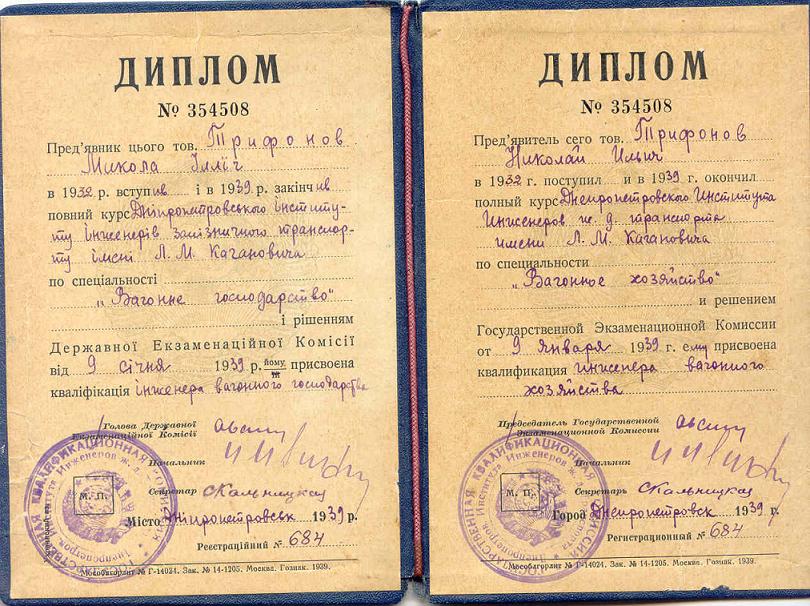 ДИПЛОМ
№ 354508
Пред'явник цього тов. Трифонов
Микола Ілліч
в 1932 р. вступив і в 1939 р. закінчив
повний курс Дніпропетровського Інститу-
ту Інженерів Залізничного транспор-
ту імені Л. М. Кагановича
по спеціальності
„Вагонне господарство"
і рішенням
Державної Екзаменаційної Комісії
від 9 січня 1939 р. йому присвоена
кваліфікація інженера вагонного господарства
Голова Державної
Екзаменаційної Комісії
Начальник
Секретар Скальницкая
М. П.
Місто Дніпропетровськ 1939 р.
Реєстраційний № 684
Мособлгорлит № Г-14024. Зак. № 14-1205. Москва. Гознак. 1939.
ДИПЛОМ
№ 354508
Пред'явитель сего тов. Трифонов
Николай Ильич
в 1932 г. поступил и в 1939 г. окончил
полный курс Днепропетровского Института
Инженеров ж. д. транспорта
имени Л. М. Кагановича
по специальности
„Вагонное хозяйство"
и решением
Государственной Экзаменационной Комиссии
от 9 января 1939 г. ему присвоена
квалификация инженера вагонного
хозяйства
Председатель Государственной
Экзаменационной Комиссии
Начальник
Секретарь Скальницкая
М. П.
Город Днепропетровск 1939 г.
Регистрационный № 684
Мособлгорлит № Г-14024. Зак. № 14-1205. Москва. Гознак. 1939.